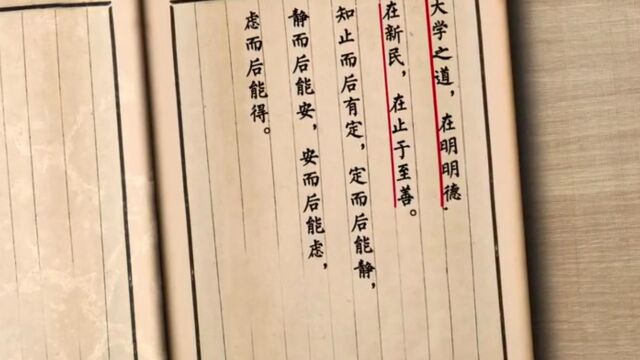 大学之道，在明明德，
在新民，在止于至善。
知止而后有定，定而后能静，
静而后能安，安而后能虑，
虑而后能得。